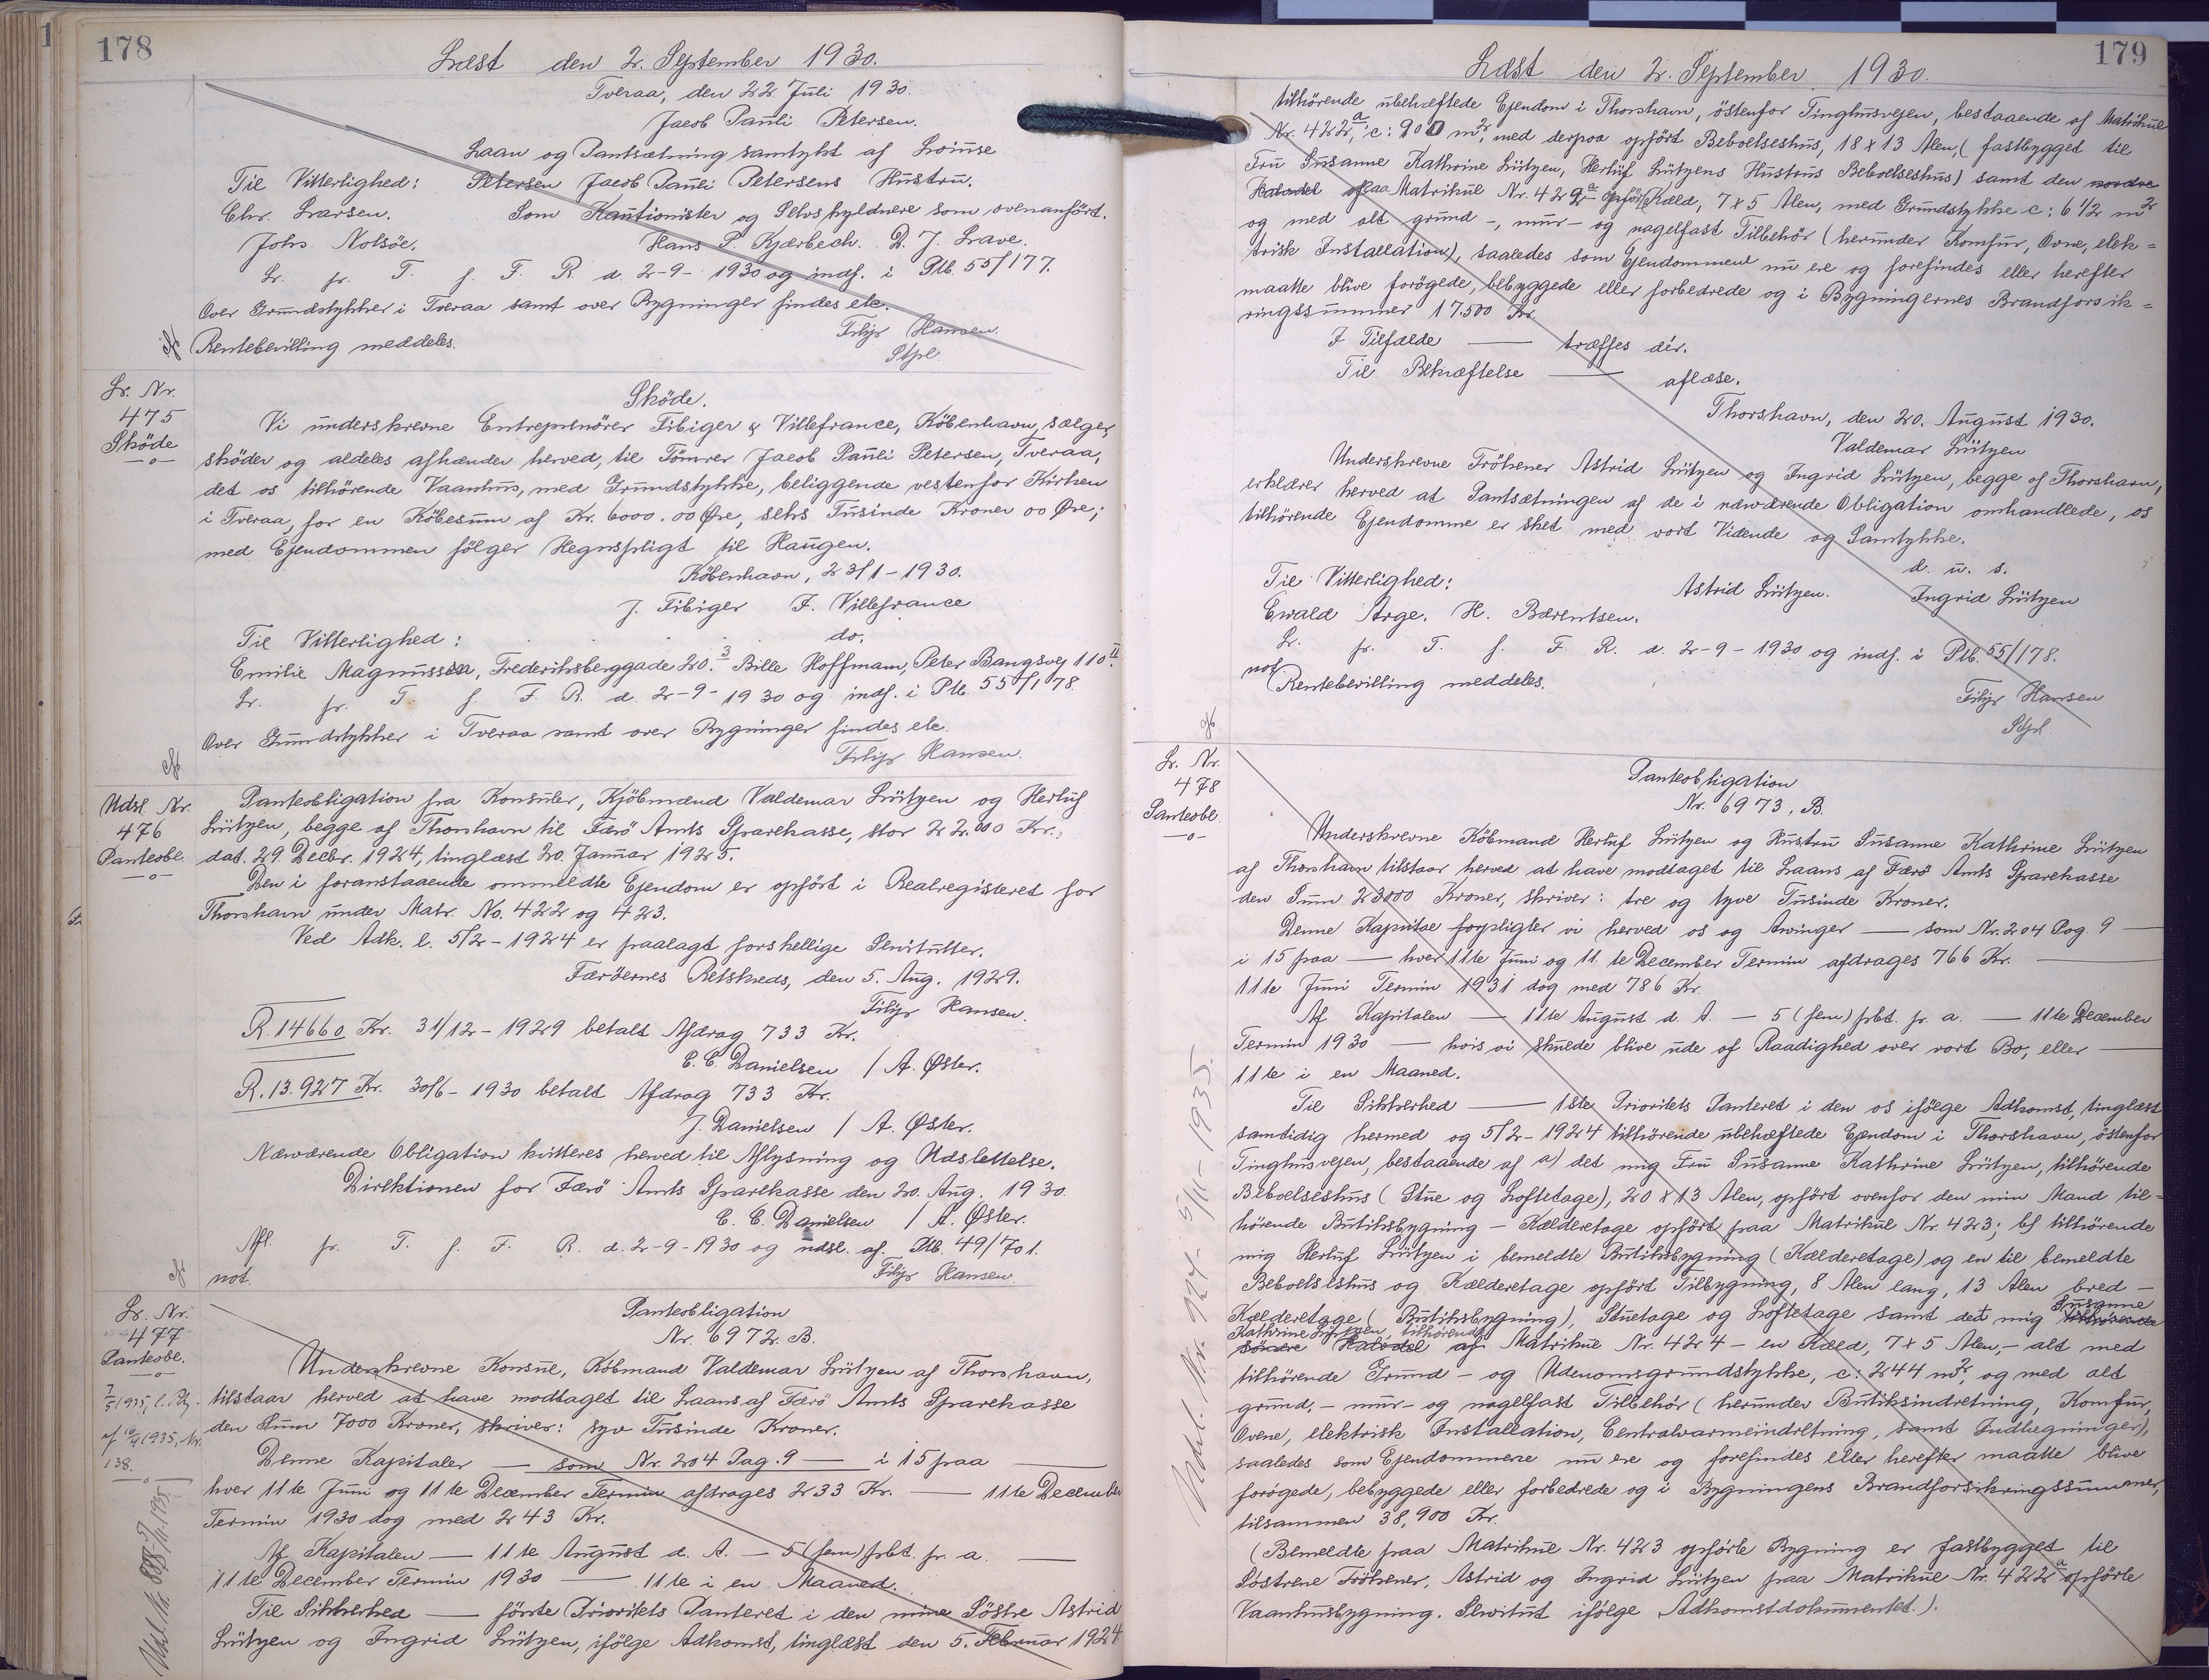 178
Læst den 2. September 1930.
Tveraa, den 22 Juli 1930.
Jacob Pauli Petersen.
Laan og Pantsætning samtykt af Loiuse
Til Vitterlighed: Petersen Jacob Pauli Petersens Hustru.
Chr. Larsen. Som Kautionister og Selvskyldnere som ovenanført.
Johs. Nolsøe. Hans P. Kjærbech. D. J. Lave.
Lr. fr. T. f. F. R. d. 2-9-1930 og indf. i Ptb. 55/177.
Over Grundstykker i Tveraa samt over Bygninger findes etc.
Filip Hansen.
Rentebevilling meddeles.
Stpl.
Lr. Nr.
475
Sköde
-o-
Sköde.
Vi underskrevne Entreprenörer Fibiger & Villefrance, København, sælger,
sköder og aldeles afhænder herved, til Tömrer Jacob Pauli Petersen, Tveraa,
det os tilhörende Vaanhus, med Grundstykke, beliggende vestenfor Kirken
i Tveraa, for en Købesum af Kr. 6000.00 Øre, seks Tusinde Kroner 00 Øre;
med Ejendommen følger Hegnspligt til Haugen.
København, 23/1-1930.
J. Fibiger F. Villefrance
Til Vitterlighed: do.
Emilie Magnussen, Frederiksberggade 20.3 Bille Hoffmam, Peter Bangsvej 110 II.
Lr. fr. T. f. F. R. d. 2-9-1930 og indf. i Ptb. 55/178
Over Grundstykker i Tveraa samt over Bygninger findes etc.
Filip Hansen.
Udsl. Nr.
476
Panteobl.
-o-
Panteobligation fra Konsuler, Kjöbmænd Valdemar Lützen og Herluf
Lützen, begge af Thorshavn til Færö Amts Sparekasse, stor 22.000 Kr.,
dat. 29. Decbr. 1924, tinglæst 20. Januar 1925.
Den i foranstaaende ommeldte Ejendom er opført i Realregisteret for
Thorshavn under Matr. No. 422 og 423.
Ved Adk. l. 5/2-1924 er paalagt forskellige Servitutter.
Færöernes Retskreds, den 5. Aug. 1929.
Filip Hansen.
R. 14660 Kr. 31/12-1929 betalt Afdrag 733 Kr.
E. C. Danielsen / A. Øster.
R. 13.927 Kr. 30/6-1930 betalt Afdrag 733 Kr.
J. Danielsen / A. Øster.
Nærværende Obligation kvitteres herved til Aflysning og Udslettelse.
Direktionen for Færö Amts Sparekasse den 20. Aug. 1930.
E. C. Danielsen / A. Øster.
Afl. fr. T. f. F. R. d. 2-9-1930 og udsl. af Ptb. 49/701.
not. Filip Hansen.
Lr. Nr.
477
Panteobl.
-o-
Panteobligation
Nr. 6972. B.
Underskrevne Konsul, Købmand Valdemar Lützen af Thorshavn,
tilstaar herved at have modtaget til Laans af Færö Amts Sparekasse
den Sum 7000 Kroner, skriver: syv Tusinde Kroner.
138.
Denne Kapitaler — som Nr. 204 Pag. 9 — i 15 paa —
hver 11te Juni og 11te December Termin afdrages 233 Kr. — 11te December
Termin 1930 dog med 243 Kr.
Af Kapitalen — 11te August d. A. — 5 (fem) prct. pr. a. —
11te December Termin 1930 — 11te i en Maaned.
Til Sikkerhed — første Prioritets Panteret i den mine Söstre Astrid
Lützen og Ingrid Lützen, ifölge Adkomst, tinglæst den 5. Februar 1924
179
Læst den 2. September 1930.
tilhörende ubehæftede Ejendom i Thorshavn, östenfor Tinghusvejen, bestaaende af Matrikul
Nr. 422a, c: 900 m2, med derpaa opført Beboelseshus, 18 x 13 Alen, (fastbygget til
Fru Susanne Kathrine Lützen, Herluf Lützens Hustrus Beboelseshus) samt den nordre
Halvdel af paa Matrikul Nr. 422a opført Kæld, 7x5 Alen, med Grundstykke c: 6 1/2 m2
og med alt grund-, mur- og nagelfast Tilbehör (herunder Komfur, Ovne, elek=
trisk Installation), saaledes som Ejendommene nu ere og forefindes eller herefter
maatte blive forögede, bebyggede eller forbedrede og i Bygningernes Brandforsik=
ringssummer 17.500 Kr.
I Tilfælde — træffes dér.
Til Bekræftelse — aflæse.
Thorshavn, den 20. August 1930.
Valdemar Lützen
Underskrevne Frökener Astrid Lützen og Ingrid Lützen, begge af Thorshavn,
erklærer herved at Pantsætningen af de i nærværende Obligation omhandlede, os
tilhörende Ejendomme er sket med vort Vidende og Samtykke.
d. u. s.
Til Vitterlighed: Astrid Lützen. Ingrid Lützen
Ewald Arge. H. Bærentsen.
Lr. fr. T. f. F. R. d. 2-9-1930 og indf. i Ptb. 55/178.
not. Rentebevilling meddeles.
Filip Hansen
Stpl.
Lr. Nr.
478
Panteobl.
-o-
Panteobligation
Nr. 6973. B.
Underskrevne Købmand Herluf Lützen og Hustru Susanne Kathrine Lützen
af Thorshavn tilstaar herved at have modtaget til Laans af Færö Amts Sparekasse
den Sum 23000 Kroner, skriver: tre og tyve Tusinde Kroner.
Denne Kapital forpligter vi herved os og Arvinger — som Nr. 204 Pag. 9 —
i 15 paa — hver 11te Juni og 11.te December Termin afdrages 766 Kr. —
11te Juni Termin 1931 dog med 786 Kr.
Af Kapitalen — 11te August d. A. — 5 (fem) prct. pr. a. — 11te December
Termin 1930 — hvis vi skulde blive ude af Raadighed over vort Bo, eller —
11te i en Maaned.
Til Sikkerhed — 1ste Prioritets Panteret i den os ifölge Adkomst, tinglæst
samtidig hermed og 5/2-1924 tilhörende ubehæftede Ejendom i Thorshavn, östenfor
Tinghusvejen, bestaaende af a) det mig Fru Susanne Kathrine Lützen, tilhörende
Beboelseshus (Stue og Loftetage), 20 x 13 Alen, opført ovenfor den min Mand til=
hörende Butiksbygning - Kælderetage opført paa Matrikul Nr. 423; b) tilhörende
mig Herluf Lützen i bemeldte Butiksbygning (Kælderetage) og en til bemeldte
Beboelseshus og Kælderetage opført Tilbygning, 8 Alen lang, 13 Alen bred -
Kælderetage (Butiksbygning), Stuetage og Loftetage samt det mig Susanne tilhörende
Kathrine Lützen tilhörende
søndre Halvdel af Matrikul Nr. 424 - en Kæld, 7x5 Alen, - alt med
tilhörende Grund- og Udenomsgrundstykke, c: 244 m2, og med alt
grund.- mur- og nagelfast Tilbehör (herunder Butiksindretning, Komfur,
Ovne, elektrisk Installation, Centralvarmeindretning, samt Indhegninger),
saaledes som Ejendommene nu ere og forefindes eller herefter maatte blive
forögede, bebyggede eller forbedrede og i Bygningens Brandforsikringssummer,
tilsammen 38,900 Kr.
(Bemeldte paa Matrikul Nr. 423 opførte Bygning er fastbygget til
Söstrene Frökener, Astrid og Ingrid Lützen paa Matrikul Nr. 422a opførte
Vaanhusbygning. Servitut ifölge Adkomstdokumentet.).